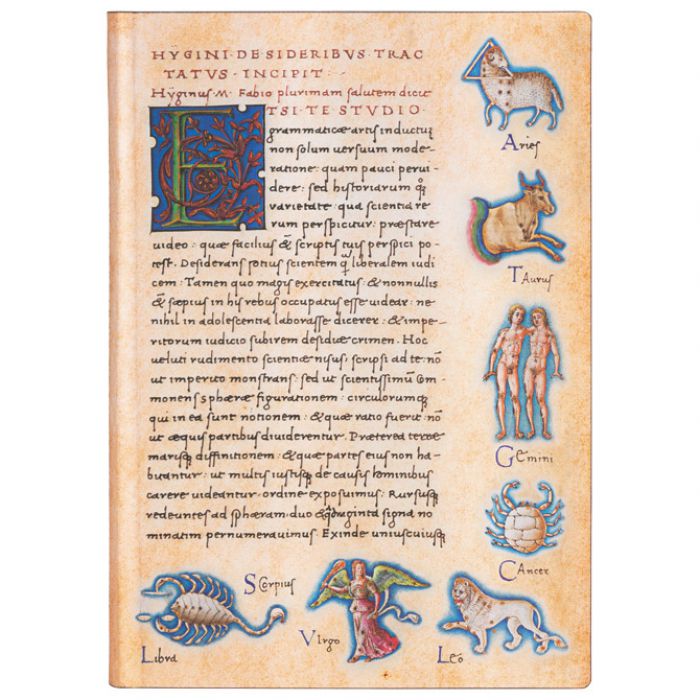 HYGINI · DE SIDERIBVS · TRAC
TATVS · INCIPIT ·
Hyginus · M · Fabio plurimam salutem dicit
ETSI · TE STVDIO ·
grammaticæ artis inductuʒ
non solum versuum mode-
ratione: quam pauci pervi-
dere: sed historiarum qʒ
varietate · qua scientia re
rum perspicitur: præstare
video: quæ facilius & scriptis tuis perspici po-
test. Desiderans potius scientem q̃ liberalem iudi
cem: Tamen quo magis exercitatus: & nonnullis
& sæpius in his rebus occupatus esse videar: ne
nihil in adolescentia laborasse dicerer: & impe-
ritorum iudicio subirem desidiæ crimen. Hoc
veluti rudimento scientiæ nisus: scripsi ad te: nõ
ut imperito monstrans: sed ut scientissimũ Com-
monens sphæræ figurationem: circulorumqʒ
qui in ea sunt notionem: & quæ ratio fuerit: nõ
ut æquis partibus dividerentur. Præterea terræ
marisqʒ diffinitionem: & quæ partes eius non ha-
buantur: ut multis iustisqʒ de causis hominibus
carere videantur · ordine exposuimus. Rursusqʒ
redeuntes ad sphæram · duo & signa · no
minatim pernumeravimus. Exinde uniuscuiusqʒ
Aries
Taurus
Gemini
CAncer
Scorpius
Virgo
Leo
Libra